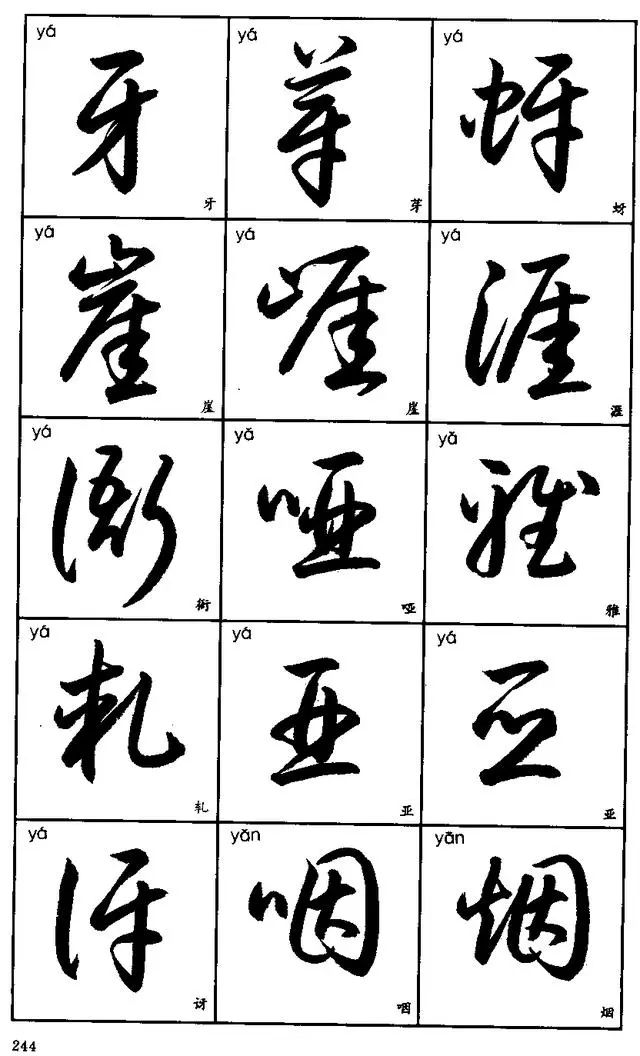 yá yá yá
牙 芽 蚜
牙 芽 蚜
yá yá yá
崖 崖 涯
崖 崖 涯
yá yǎ yǎ
衙 哑 雅
衙 哑 雅
yá yá yá
轧 亚 亚
轧 亚 亚
yá yǎn yǎn
讶 咽 烟
讶 咽 烟
244